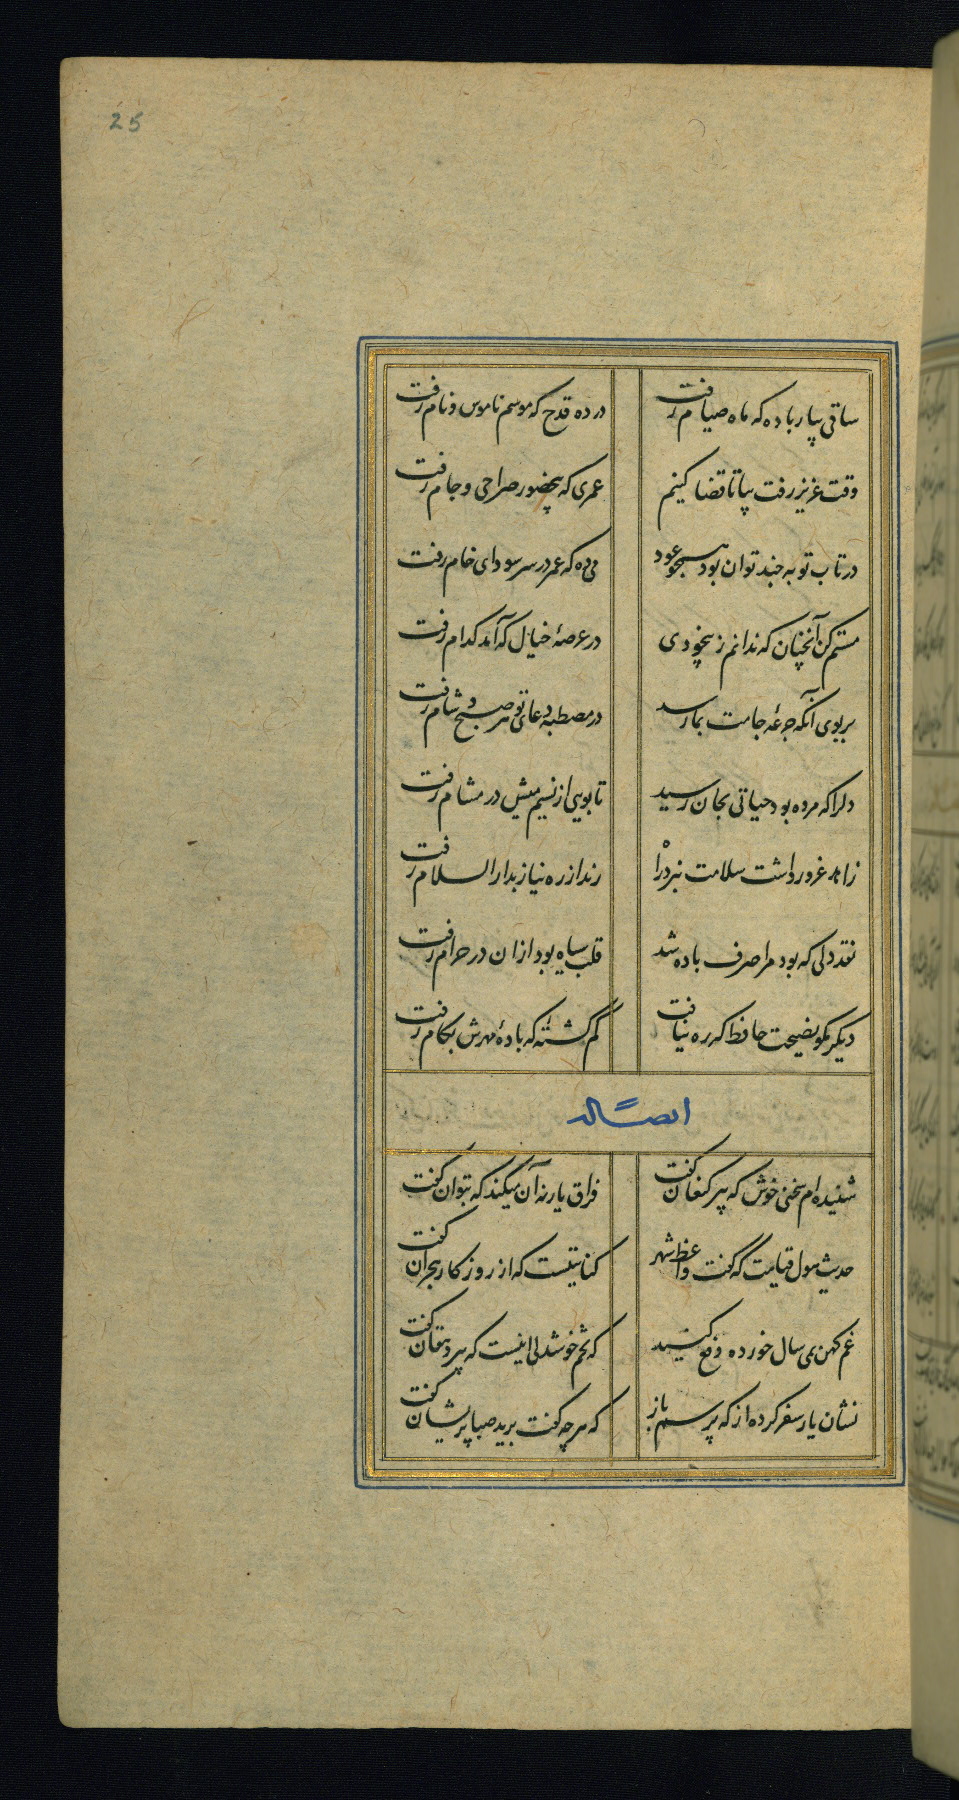 25
ساقی بیار باده که ماه صیام رفت
در ده قدح که موسم ناموس و نام رفت
وقت عزیز رفت بیا تا قضا کنیم
عمری که بیحضور صراحی و جام رفت
در تاب توبه چند توان بود همچو عود
می ده که عمر در سر سودای خام رفت
مستم کن آنچنان که ندانم ز بیخودی
در عرصهٔ خیال که آمد کدام رفت
بر بوی آنکه جرعه جامت بما رسد
در مصطبه دعای تو هر صبح و شام رفت
دلرا که مرده بود حیاتی بجان رسید
تا بویی از نسیم میش در مشام رفت
زاهد غرور داشت سلامت نبرد راه
رند از ره نیاز بدار السلام رفت
نقد دلی که بود مرا صرف باده شد
قلب سیاه بود ازان در حرام رفت
دیگر مگو نصیحت حافظ که ره نیافت
گم گشتهٔ که بادهٔ مهرش بکام رفت
ایضاً له
شنیده ام سخنی خوش که پیر کنعان گفت
فراق یار نه آن میکند که بتوان گفت
حدیث هول قیامت که گفت واعظ شهر
کنایتیست که از روزگار هجران گفت
غم کهن بمی سال خورده دفع کنید
که تخم خوشدلی اینست که پیر دهقان گفت
نشان یار سفر کرده از که پرسم باز
که هر چه گفت برید صبا پریشان گفت